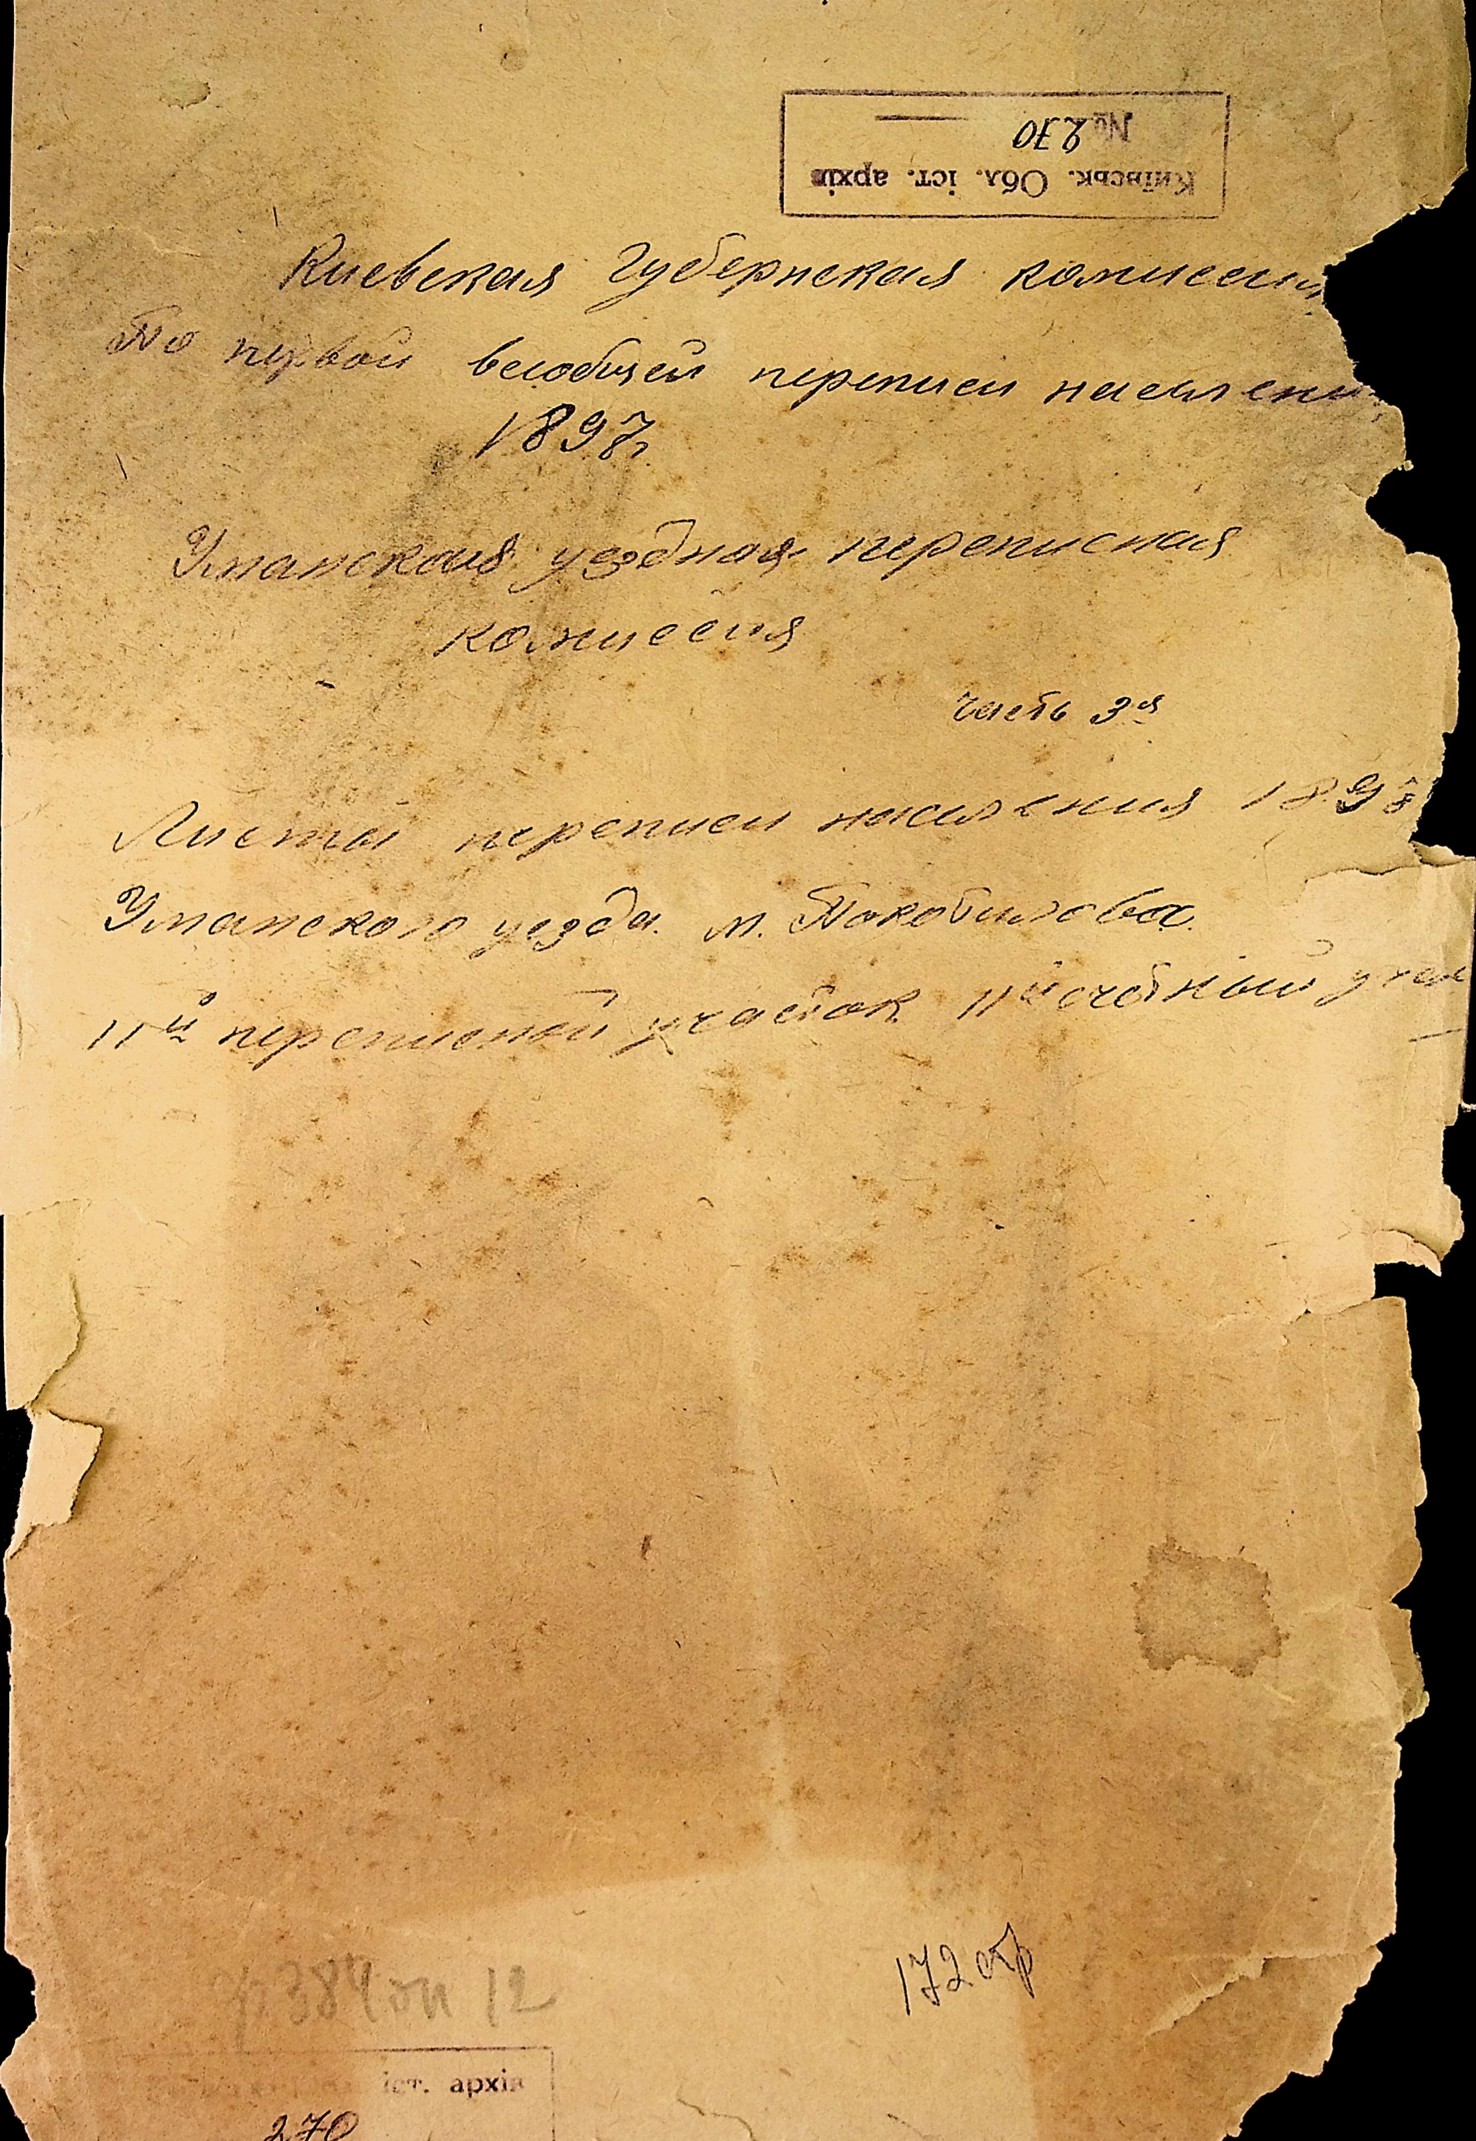 Київськ. Обл. іст. архів
№ 270
Киевская Губернская комиссия
По первой всеобщей переписи населени
1897г
Уманская уездная переписная
комиссия
Часть 3я
Листы переписи населения 1897
Уманского уезда. м. Покотилова.
11й переписной участок 11й счетный учас
172 стр
ф. 384 оп 12
іст. архів
270